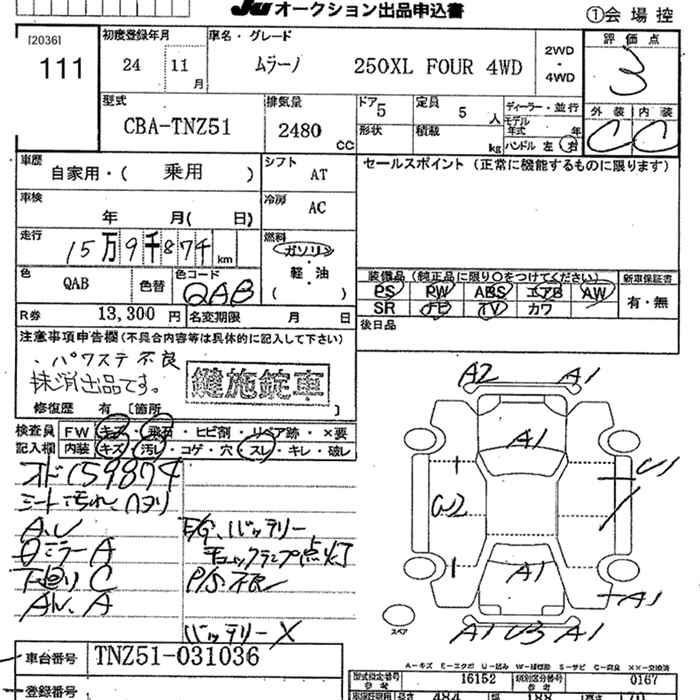 JU オークション出品申込書
①会場控
[2036]
111
初度登録年月
24 11月
車名・グレード
ムラーノ 250XL FOUR 4WD
2WD
・
4WD
評価点
3
外装 内装
C C
型式
CBA-TNZ51
排気量
2480 CC
ドア 5
定員 5 人
形状 積載 kg
ディーラー・並行
モデル年式 年
ハンドル 左 右
車歴
自家用・( 乗用 )
シフト
AT
セールスポイント (正常に機能するものに限ります)
車検
年 月( 日)
冷房
AC
走行
15万9千874 km
燃料
ガソリン
・
軽・油
( )
色
QAB
色替
色コード
QAB
装備品 (純正品に限り○をつけてください)
PS PW ABS エアB AW
SR ナビ TV カワ
新車保証書
有・無
R券
13,300 円
名変期限 月 日
後日品
注意事項申告欄 (不具合内容等は具体的に記入して下さい)
、パワステ不良
抹消出品です。
鍵施錠車
修復歴 有 [箇所 ]
検査員 FW キズ・飛石・ヒビ割・リペア跡・×要
記入欄 内装 キズ・汚れ・コゲ・穴・スレ・キレ・破レ
オド159874
シート汚れ、ヘタリ
下廻りC
E/G、バッテリー
チェックランプ点灯
P/S不良
バッテリーX
A2 A1
A1
U1
W2
A1
A1
A1 U3 A1
スペア
A-キズ E-エクボ U-凹み W-補修跡 S-サビ C-腐蝕 XX-交換済
車台番号
TNZ51-031036
登録番号
型式指定番号 16152
類別区分番号 0167
484 188 170